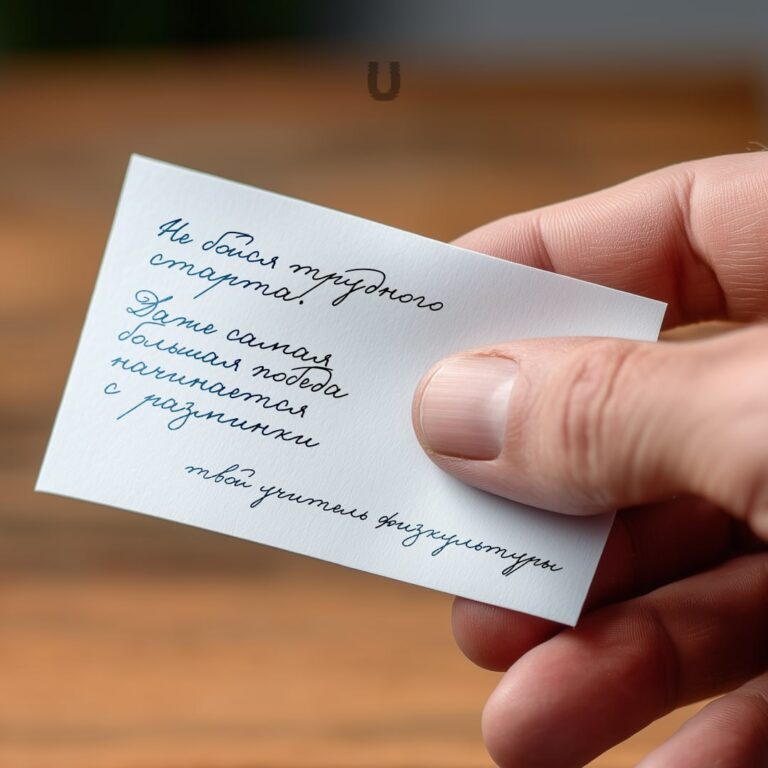 U
Не бойся трудного
старта.
Даже самая
большая победа
начинается
с разминки
твой учитель физкультуры